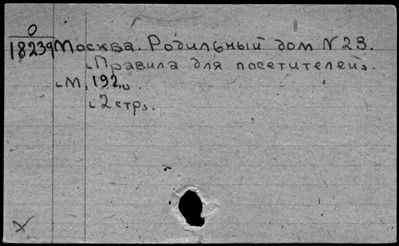 0
18239 Москва. Родильный дом N 23.
Правила для посетителей.
М, 192
2 стр.